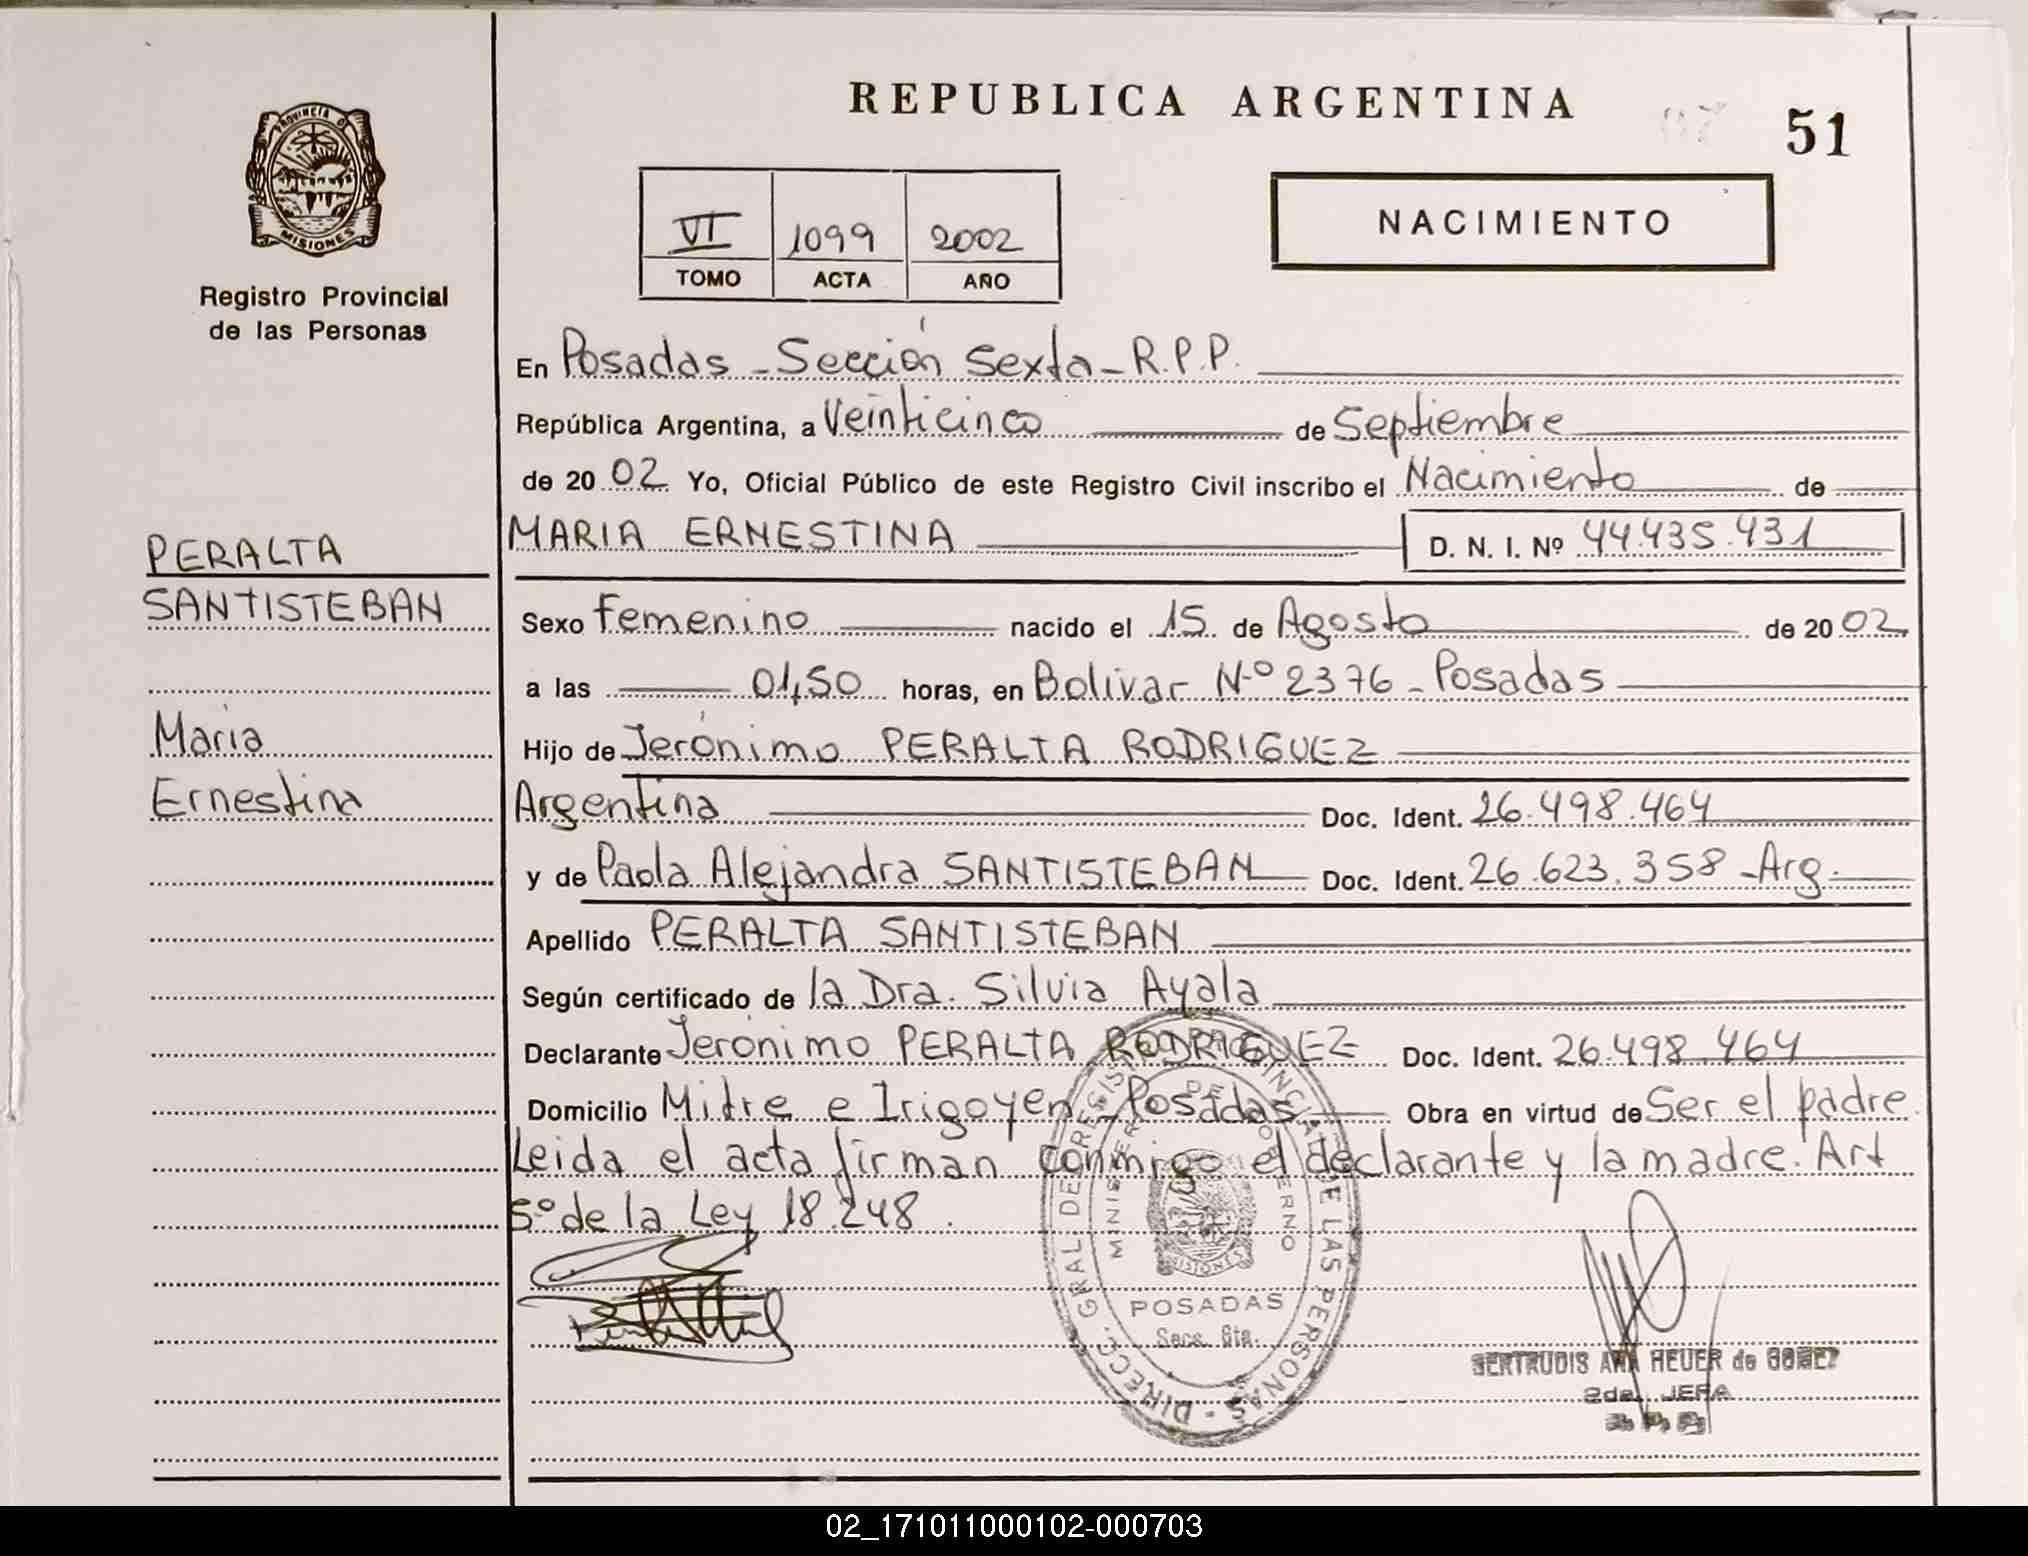 REPUBLICA ARGENTINA
51
PROVINCIA DE
MISIONES
Registro Provincial
de las Personas
VI 1099 2002
TOMO ACTA AÑO
NACIMIENTO
En Posadas - Sección Sexta - R.P.P.
República Argentina, a Veinticinco de Septiembre
de 2002 Yo, Oficial Público de este Registro Civil inscribo el Nacimiento de
MARIA ERNESTINA D. N. I. Nº 44.435.431
PERALTA
SANTISTEBAN
Maria
Ernestina
Sexo Femenino nacido el 15 de Agosto de 2002
a las 01,50 horas, en Bolivar Nº 2376 - Posadas
Hijo de Jerónimo PERALTA RODRIGUEZ
Argentina Doc. Ident. 26.498.464
y de Paola Alejandra SANTISTEBAN Doc. Ident. 26.623.358 - Arg.
Apellido PERALTA SANTISTEBAN
Según certificado de la Dra. Silvia Ayala
Declarante Jerónimo PERALTA RODRIGUEZ Doc. Ident. 26.498.464
Domicilio Mitre e Irigoyen - Posadas Obra en virtud de Ser el padre.
Leida el acta firman conmigo el declarante y la madre. Art
5º de la Ley 18.248.
DIRECC. GRAL. DE REGISTRO PROVINCIAL DE LAS PERSONAS -
MINISTERIO DE GOBIERNO
MISIONES
POSADAS
Secc. 6ta.
GERTRUDIS ANA HEUER de GOMEZ
2da. JEFA
02_171011000102-000703